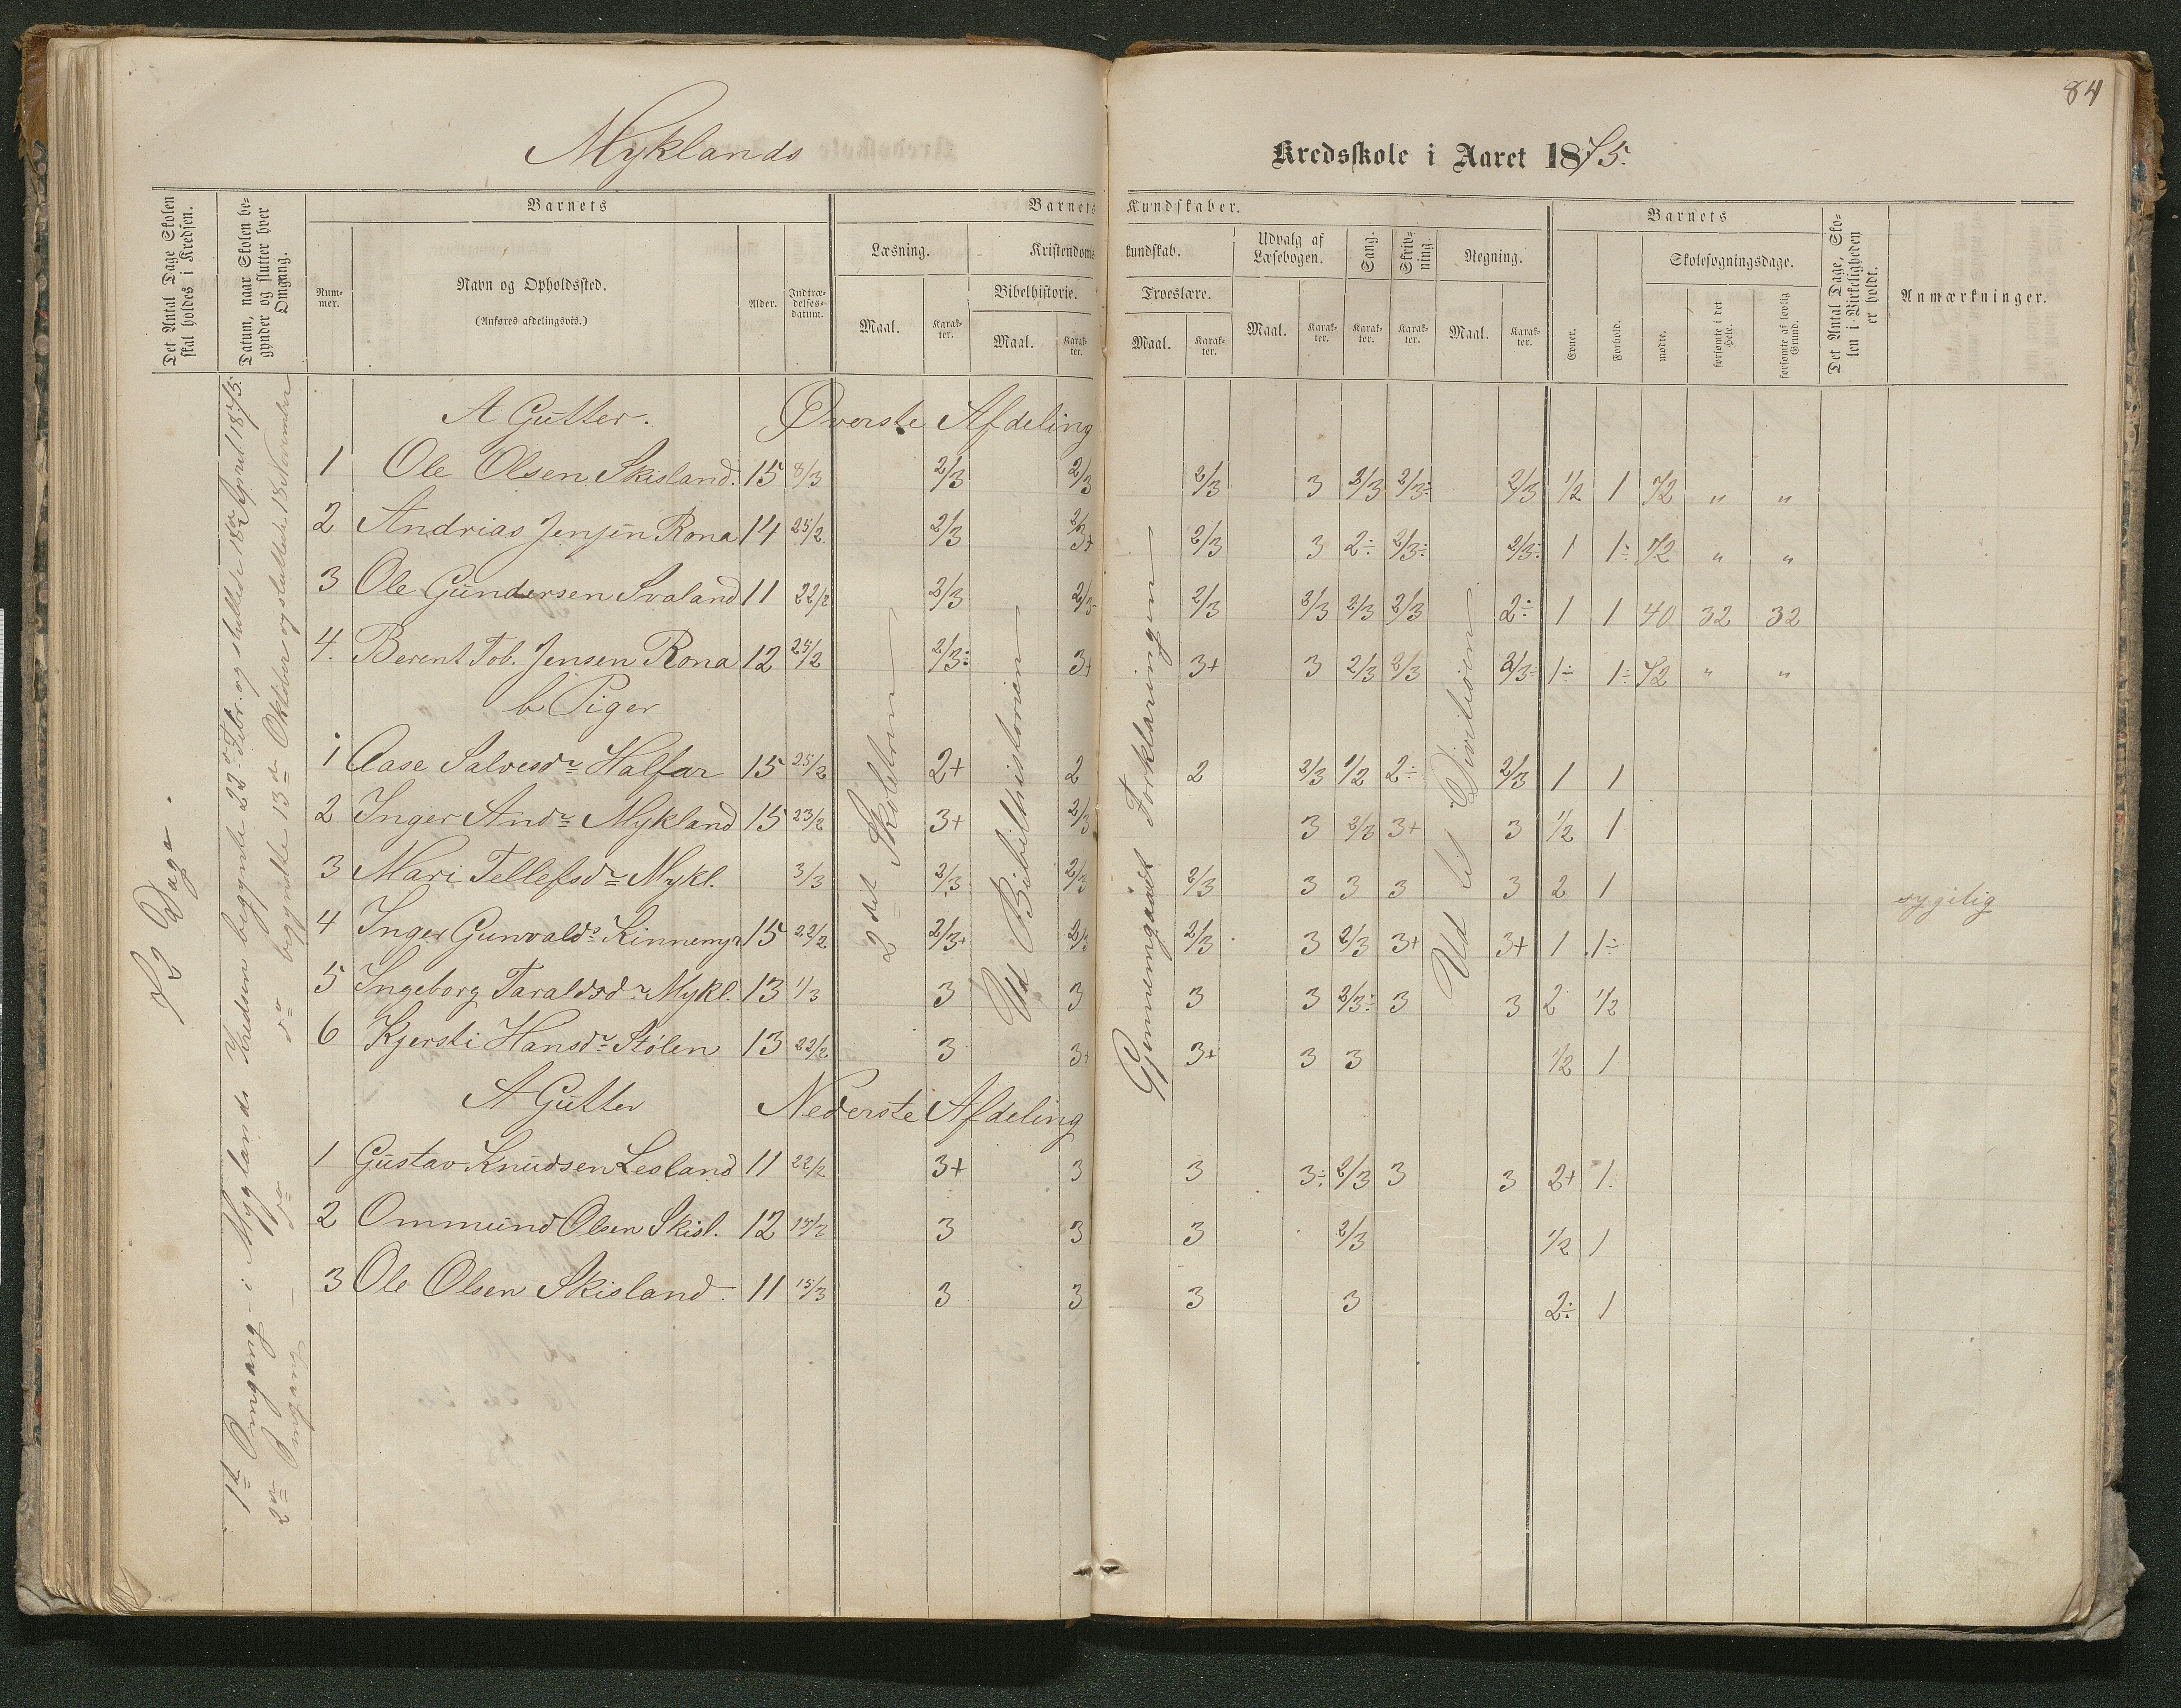 84
Myklands Kredsskole i Aaret 1875.
Det Antal Dage Skolen skal holdes i Kredsen.
Datum, naar Skolen begynder og slutter hver Omgang.
Barnets
Num-
mer.
Navn og Opholdssted.
(Anføres afdelingsvis.)
Alder.
Indtræ-
delses-
datum.
Barnets Kundskaber.
Læsning.
Maal.
Karak-
ter.
Kristendomskundskab.
Bibelhistorie.
Maal.
Karak-
ter.
Troeslære.
Maal.
Karak-
ter.
Udvalg af
Læsebogen.
Maal.
Karak-
ter.
Sang.
Karak-
ter.
Skriv-
ning.
Karak-
ter.
Regning.
Maal.
Karak-
ter.
Barnets
Evner.
Forhold.
Skolesøgningsdage.
mødte.
forsømte i det Hele.
forsømte af lovlig Grund.
Det Antal Dage, Skolen i Virkeligheden er holdt.
Anmærkninger.
72 Dage.
1ste Omgang i Myglands Kredsen begynte 22de Febr. og sluttede 18de April 1875.
2den Omgang do do begyndte 13de Oktober og sluttede 18 November
2det Skoletrin
Ud Bibelhistorien
Gjennemgaaet Forklaringen
Ud til Divitionen
A Gutter. Øverste Afdeling
1 Ole Olsen Skisland. 15 8/3 2/3 2/3 2/3 3 2/3 2/3÷ 2/3 1/2 1 72 " "
2 Andrias Jensen Rona 14 25/2 2/3 3+ 2/3 3 2÷ 2/3÷ 2/3÷ 1 1÷ 72 " "
3 Ole Gundersen Svaland 11 22/2 2/3 2/3 2/3 2/3 2/3 2/3 2÷ 1 1 40 32 32
4. Berent Tob. Jensen Rona 12 25/2 2/3÷ 3+ 3+ 3 2/3 2/3 2/3÷ 1÷ 1÷ 72 " "
b Piger
1 Aase Salvesdr Halfar 15 25/2 2+ 2 2 2/3 1/2 2÷ 2/3 1 1
2 Inger Andr Mykland 15 23/2 3+ 2/3 3 2/3 3+ 3 1/2 1
3 Mari Tellefsdr Mykl. 3/3 2/3 2/3 2/3 3 3 3 3 2 1 sygelig
4 Inger Gunvalds Kinnemyr 15 22/2 2/3+ 2/3 2/3 3 2/3 3+ 3+ 1 1÷
5 Ingeborg Taraldsdr Mykl. 13 1/3 3 3 3 3 2/3÷ 3 3 2 1/2
6 Kjersti Hansdr Stølen 13 22/2 3 3+ 3+ 3 3 1/2 1
A Gutter Nederste Afdeling
1 Gustav Knudsen Lesland 11 22/2 3+ 3 3 3÷ 2/3 3 3 2+ 1.
2 Ommund Olsen Skisl. 12 15/2 3 3 3 2/3 1/2 1
3 Ole Olsen Skisland. 11 15/3 3 3 3 3 2÷ 1